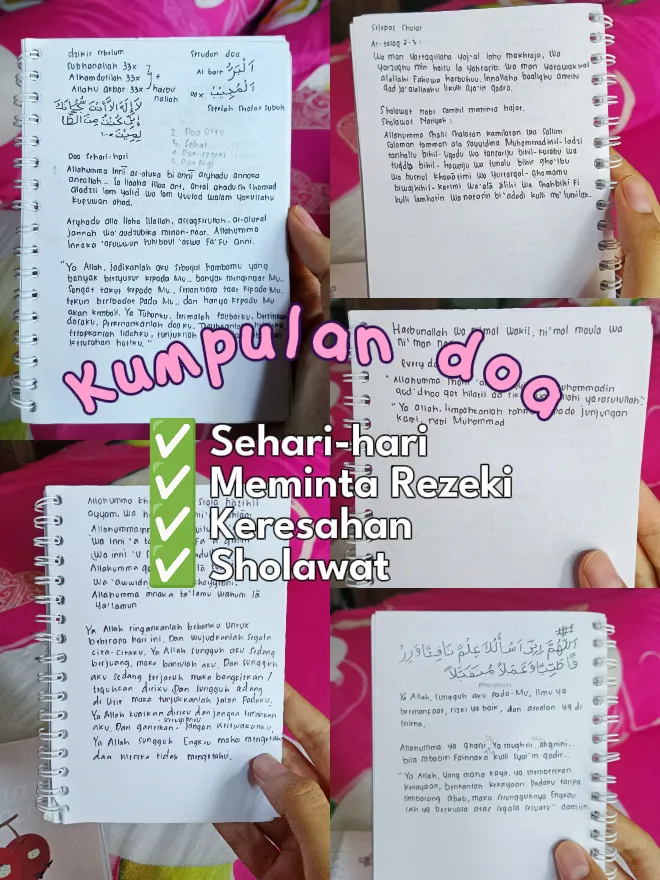 dzikir sebelum
Subhanallah 33x
Alhamdulilah 33x
Allahu akbar 33x
+
harbu
nallah
Seruan doa
Al barr الْبَرُّ
الْمُجِيْبُ
Setelah Sholat Subuh
لَا إِلَهَ إِلَّا أَنْتَ سُبْحَانَكَ
إِنِّي كُنْتُ مِنَ الظَّا
لِمِيْنَ
2. Doa
3. Sehat
Doa sehari-hari
Allahumma inni as-aluka bi anni asyhadu annaka
antallah.. la ilaaha illaa ant, antal ahadush shomad
aladzii lam yalid wa lam yuulad walam yakullahu
kufuwan ahad.
Asyhadu alla ilaha illallah, astaqfirullah, as-alukal
jannah wa'audzubika minan-naar. Allahumma
innaka 'afuwwun tuhibbul 'afwa fa'fu anni.
"Ya Allah, jadikanlah aku sebagai hambamu yang
banyak bersyukur kepada Mu.. banyak mengingat Mu..
sangat takut kepada Mu, senantiasa taat kepada Mu,
tekun beribadat Pada Mu.. dan hanya kepada Mu
akan kembali. Ya Tuhanku, terimalah taubatku, bersihkan
dosaku, Perkenankanlah doaku,
tetapkanlah lidahku, tunjuklah
Selepas Sholat
At-talaq 2-3 :
Wa man yattaqillaha yaj'al lahu makhraja, wa
yarzuqhu min haitsu la yahtasib. Wa man yatawakkal
alallahi fahuwa hasbuhuu. Innallaha baalighu amrihi
qad ja'alallahu likulli syai'in qadra.
Sholawat nabi sambil meminta hajat.
Sholawat Nariyah :
Allahumma shalli sholatan kamilatan wa sallim
salaman tamman ala sayyidina Muhammadinil-ladzi
tanhallu bihil-uqadu wa tanfariju bihil-kurabu wa
tuqdla bihil-hawaiju wa tunalu bihir gha'ibu
wa husnul khaatimi wa yastasqal-ghomamu
biwajhihil-karimi wa'ala alihi wa shahbihi fi
kulli lamhatin wa nafasin bi'adadi kulli ma'lumilak.
Kumpulan doa
Hasbunallah wa ni'mal wakil, ni'mal maula wa
ni'man
every
"Allahumma
"Ya Allah, limpahkanlah junjungan
kami, nabi Muhammad
✅ Sehari-hari
✅ Meminta Rezeki
✅ Keresahan
✅ Sholawat
Ya Allah ringankanlah bebanku untuk
beberapa hari ini. Dan wujudkanlah segala
cita-citaku. Ya Allah sungguh aku sedang
berjuang, maka bantulah aku. Dan sungguh
aku sedang terjatuh maka bangkitkan /
teguhkan diriku. Dan sungguh aku sedang
di usir maka tunjukkanlah jalan Padaku.
Ya Allah kuatkan diriku dan jangan lemahkan
aku. Dan gantikan jangan
Ya Allah sungguh Engkau maha mengetahui
dan mereka tidas mengetahui.
اَللّٰهُمَّ اِنِّيْ اَسْأَلُكَ عِلْمًا نَافِعًا وَرِزْ
قًا طَيِّبًا وَعَمَلًا مُتَقَبَّلًا
Ya Allah, sungguh aku pada-Mu, ilmu yg
bermanfaat, rizki yg baik, dan amalan yg di
terima.
Allahumma ya ghani, Ya mughni, aghnini..
bila sababin fainnaka kulli syai'in qadir..
"Ya Allah, Yang maha kaya, yg memberikan
kekayaan, berikanlah kekayaan Padaku tanpa
sembarang sebab, maka sesungguhnya Engkau
lah yg berkuasa atas segala sesuatu" aamiin.